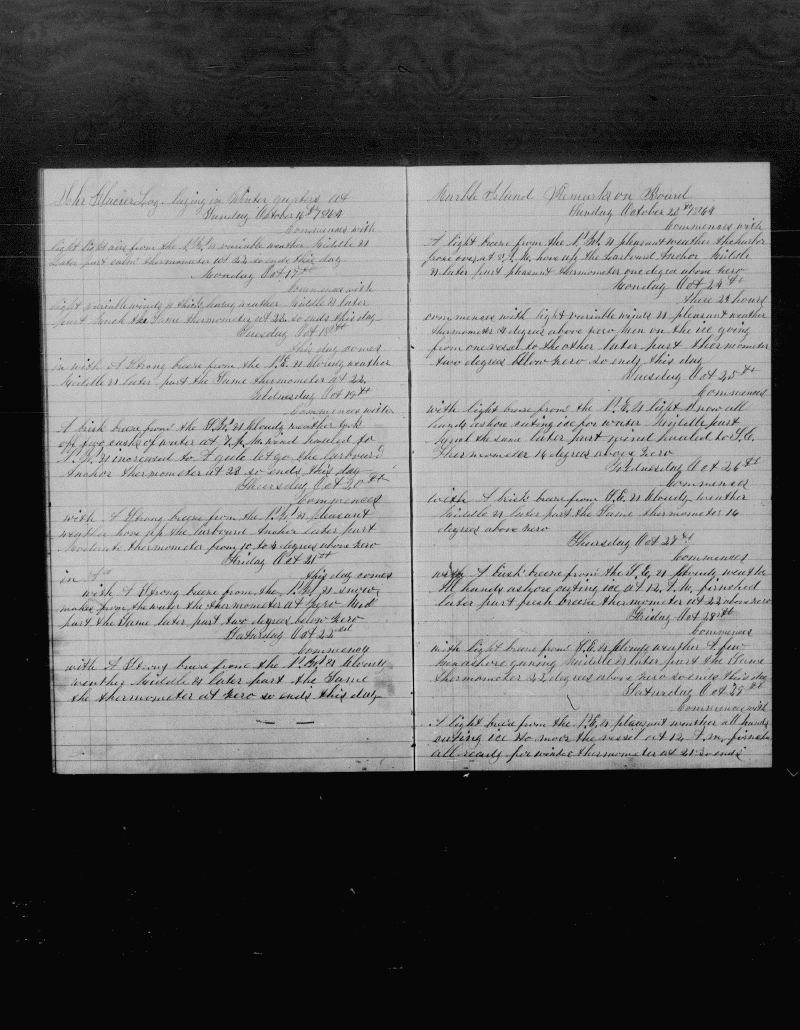 Glacier Log laying in Winter quarters att
Sunday October 16th 1864
Commences with
light airs from the N.W. & variable weather Middle &
Later part calm thermometer at 22 so ends this day
Monday Oct 17th
Commences with
light variable winds & thick weather Middle & later
part much the Same thermometer at 22 so ends this day
Tuesday Oct 18th
this day comes
in with A Strong breeze from the N.E. & Cloudy weather
Middle & later part the Same thermometer at 22
Wednesday Oct 19th
Commences with
A brisk breeze from the & Cloudy weather took
off five casks of water at P.M. wind hauled to
N.W. & increased to A gale let go the larbourd
Anchor thermometer at 23 so ends this day
Thursday Oct 20th
Commences
with A Strong breeze from the N.W. & pleasant
weather hove up the larbourd Anchor later part
Moderate thermometer from 10 to 4 degrees above zero
Friday Oct 21st
this day comes
in
with A Strong breeze from the N.W. & snow
makes from the water the thermometer at zero Mid
part the Same later part two degrees below zero
Saturday Oct 22nd
Commences
with A Strong breeze from the N.W. & Cloudy
weather Middle & later part the Same
the thermometer at zero so ends this day
Marble Island Remarks on Board
Sunday October 23rd 1864
Commences with
A light breeze from the N.W. & pleasant weather the harbor
froze over at A.M. hove up the larbourd Anchor Middle
& later part pleasant thermometer one degree above zero
Monday Oct 24th
These 24 hours
commenses with light variable winds & pleasant weather
thermometer 4 degrees above zero Men on the ice going
from one vessel to the other later part thermometer
two degrees below zero so ends this day
Tuesday Oct 25th
Commences
with light breeze from the N.E. & light Snow all
hands ashore cuting ice for winter Middle part
much the same later part wind hauled to S.E.
Thermometer 16 degrees above zero
Wednesday Oct 26th
Commences
with A brisk breeze from S.E. & Cloudy weather
Middle & later part the Same thermometer 14
degrees above zero
Thursday Oct 27th
Commences
with A brisk breeze from the S.E. & Cloudy weather
All hands ashore cuting ice at 12 A.M. finished
later part fresh breeze thermometer at 22 above zero
Friday Oct 28th
Commences
with light breeze from S.E. & Cloudy weather A few
men ashore guning Middle & later part the Same
thermometer 22 degrees above zero so ends this day
Saturday Oct 29th
Commences with
A light breeze from the N.E. & pleasant weather all hands
cuting ice to moor the vessel at 12 A.M. finish
all ready for winter thermometer at 21 So ends